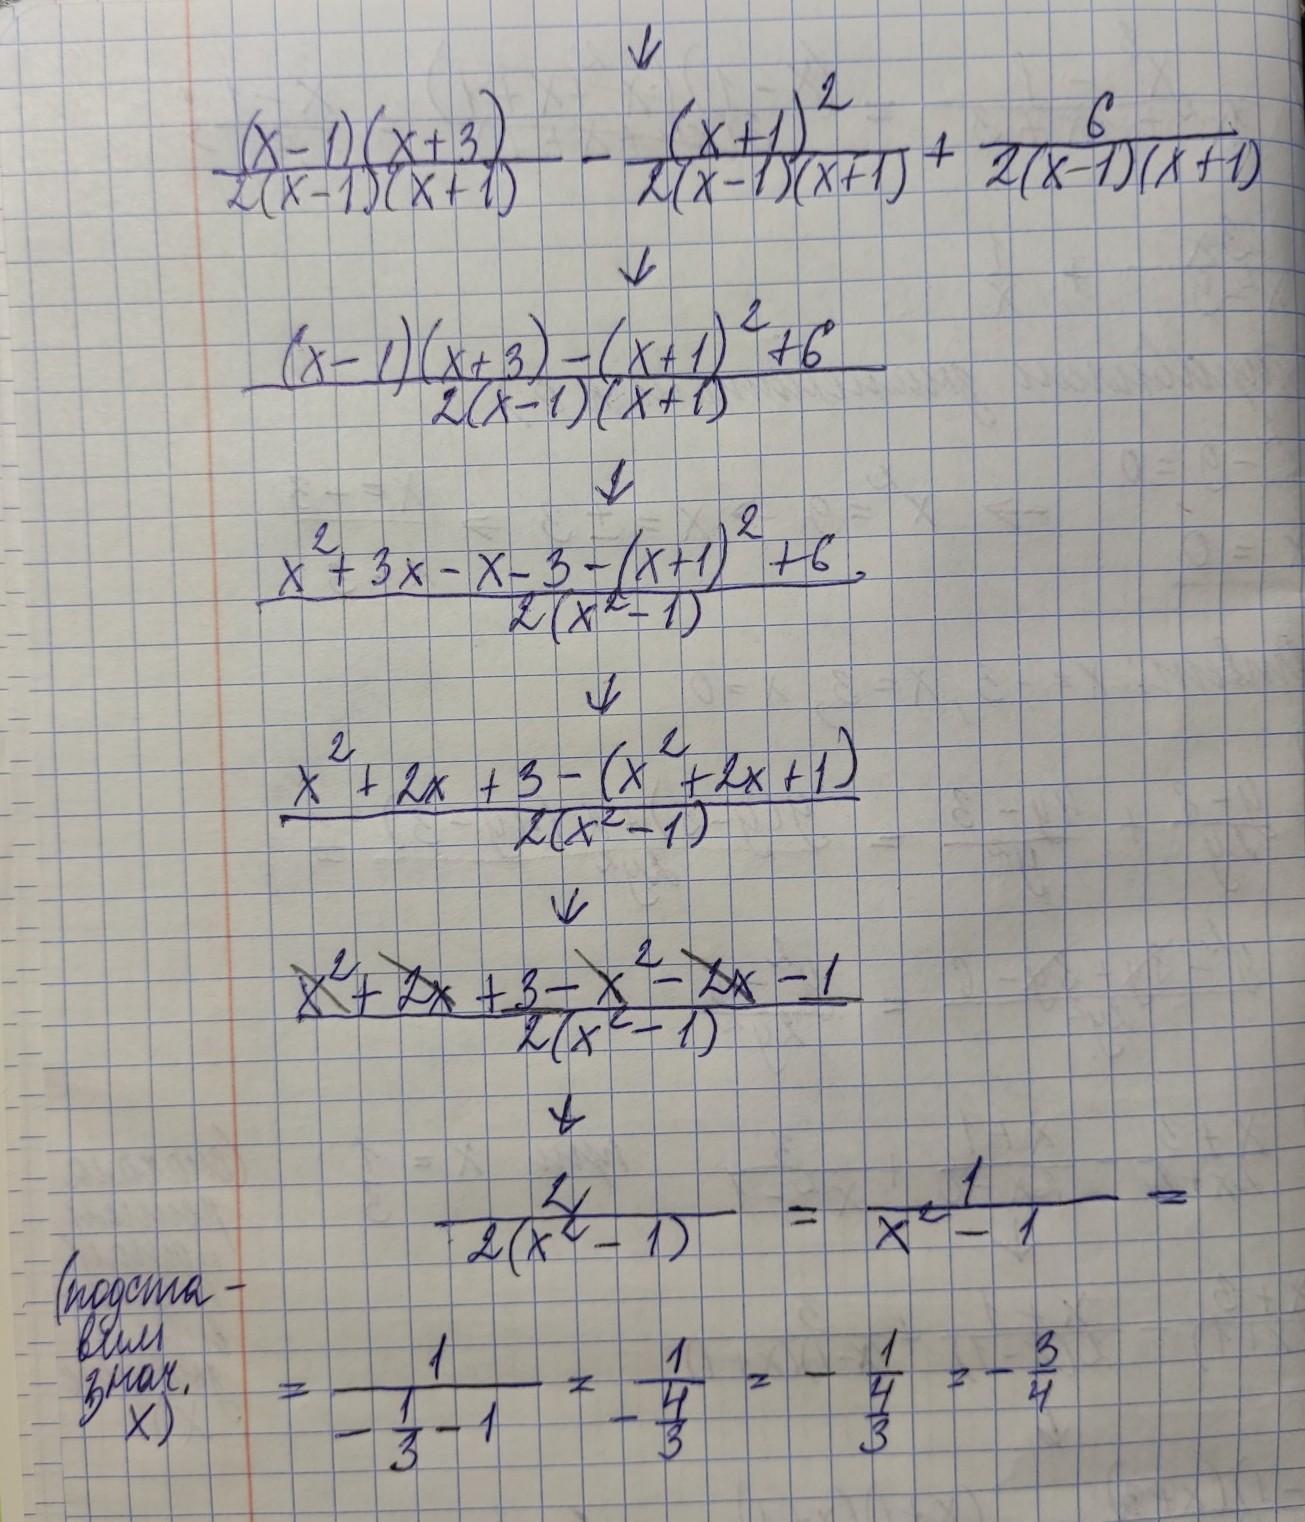 ↓
(x-1)(x+3)/2(x-1)(x+1) - (x+1)²/2(x-1)(x+1) + 6/2(x-1)(x+1)
↓
(x-1)(x+3)-(x+1)²+6/2(x-1)(x+1)
↓
x²+3x-x-3-(x+1)²+6/2(x²-1)
↓
x²+2x+3-(x²+2x+1)/2(x²-1)
↓
x²+2x+3-x²-2x-1/2(x²-1)
↓
2/2(x²-1) = 1/x²-1 =
(подста-
вим
знач.
x)
= 1/-1/3-1 = 1/-4/3 = -1/4/3 = -3/4